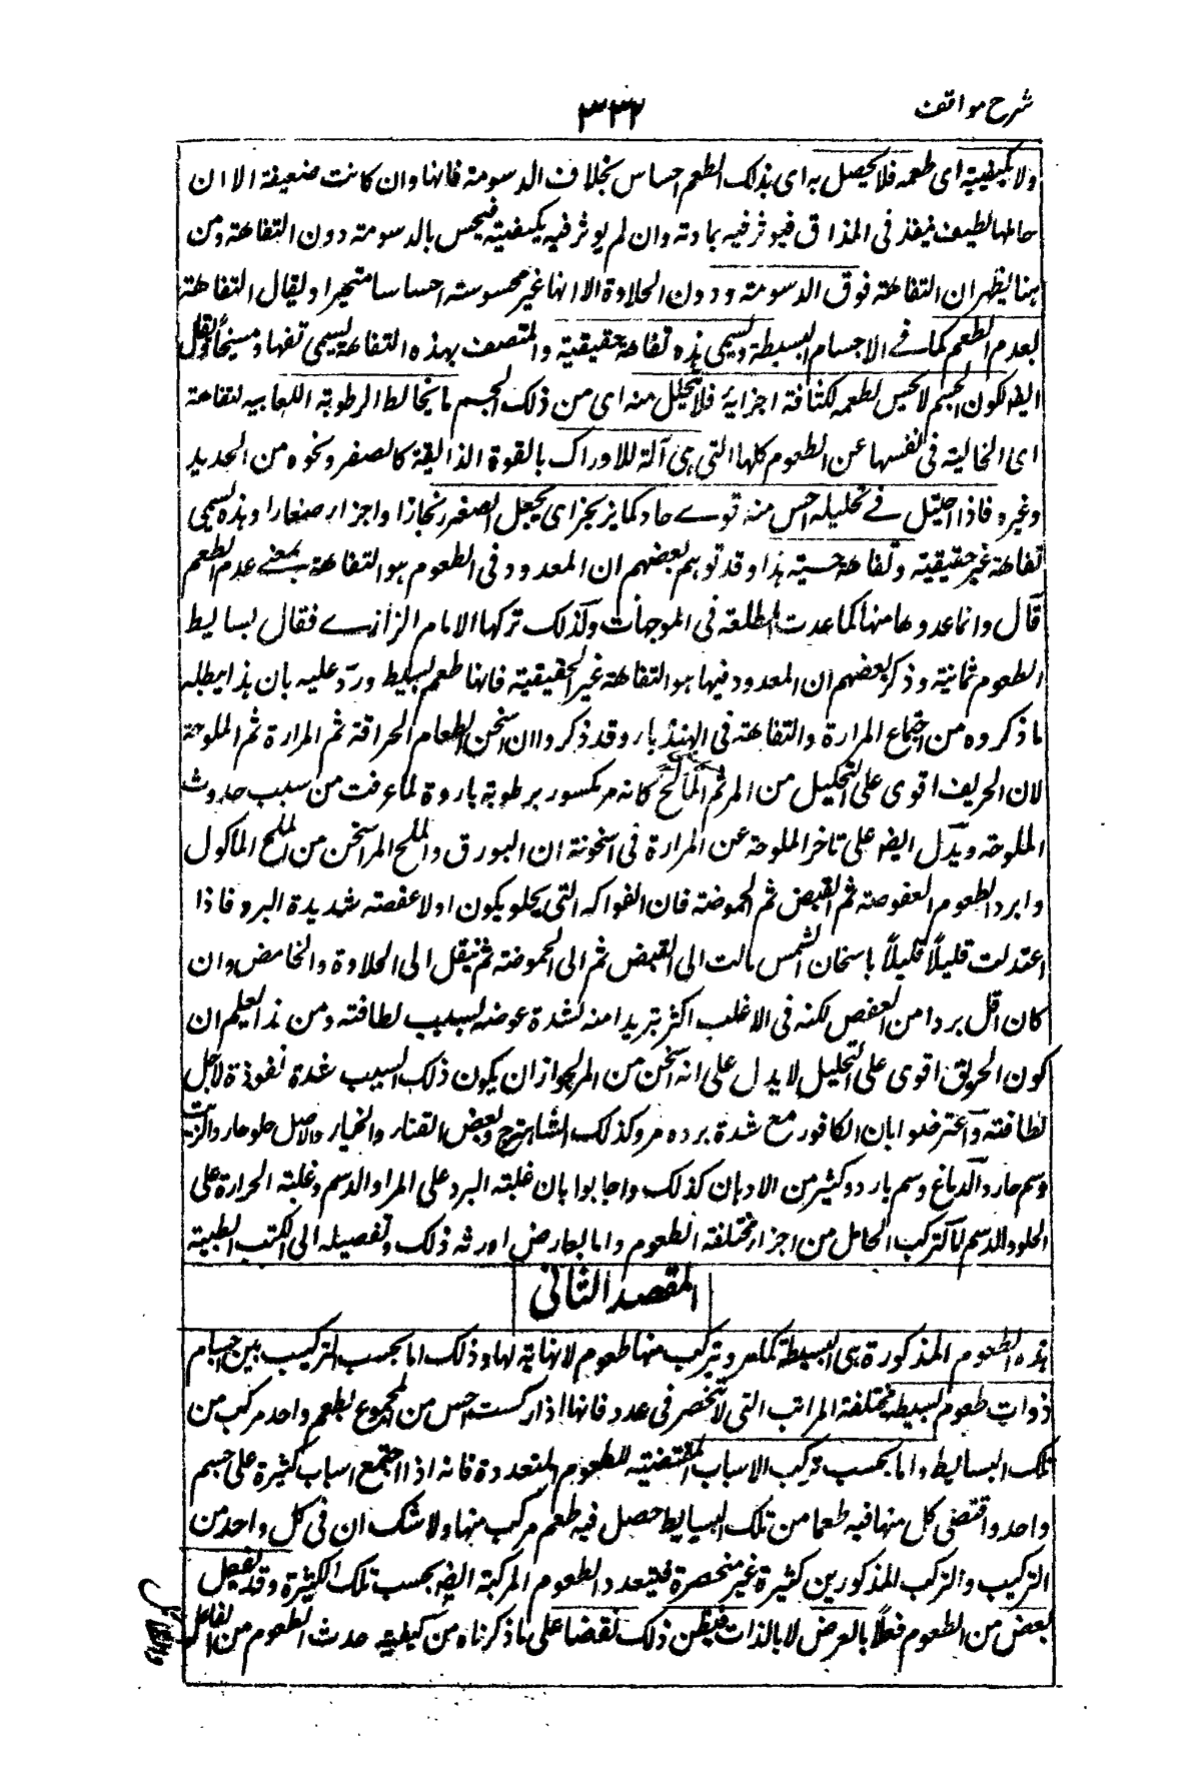 شرح مواقف
۳۳۲
ولا بكيفيته اى طعمه فلا يحصل به اى بذلك الطعم احساس بخلاف الدسومة فانها وان كانت ضعيفة الا ان
حاملها لطيف فينفذ فى المذاق فيوثر فيه بمادته وان لم يوثر فيه بكيفيته فيحس بالدسومة دون التفاهة ومن
ههنا يظهر ان التفاهة فوق الدسومة ودون الحلاوة الا انها غير محسوسة احساسا متميزا ويقال التفاهة
لعدم الطعم كما فے الاجسام البسيطة ويسمى هذه تفاهة حقيقية والمتصف بهذه التفاهة يسمى تفها ومسيخا ويقال
ايضا لكون الجسم لا يحس لطعمه لكثافة اجزايه فلا يتحلل منه اى من ذلك الجسم ما يخالط الرطوبة اللعابية لتفاهة
اى الخالية فى نفسها عن الطعوم كلها التى هى آلة للادراك بالقوة الذايقة كالصفر ونحوه من الحديد
وغيره فاذا احتيل فے تحليله احس منه قوے حاد كما يزنجر اى يجعل الصفر زنجارا واجزاء صغارا وهذه يسمى
تفاهة غير حقيقية وتفاهة حسية هذا وقد توهم بعضهم ان المعدود فى الطعوم هو التفاهة بمعنے عدم الطعم
قال وانما عدوها منها كما عدت المطلقة فى الموجهات ولذلك تركها الامام الرازے فقال بسايط
الطعوم ثمانية وذكر بعضهم ان المعدود فيها هو التفاهة غير الحقيقية فانها طعم بسيط ورد عليه بان هذا يبطله
ما ذكروه من اجتماع المرارة والتفاهة فى الهندبا وقد ذكروا ان اسخن الطعام الحرافة ثم المرارة ثم الملوحة
لان الحريف اقوى على التحليل من المر ثم المالح كانه مر مكسور برطوبة باردة لما عرفت من سبب حدوث
الملوحة ويدل ايضا على تاخر الملوحة عن المرارة فى السخونة ان البورق والملح المر اسخن من الملح الماكول
وابرد الطعوم العفوصة ثم القبض ثم الحموضة فان الفواكه التى يحلو يكون اولا عفصة شديدة البرد فاذا
اعتدلت قليلاً قليلاً باسخان الشمس مالت الى القبض ثم الى الحموضة ثم ينقل الى الحلاوة والحامض وان
كان اقل بردا من العفص لكنه فى الاغلب اكثر تبريدا منه لشدة غوصه لسبب لطافته ومن هذا يعلم ان
كون الحريف اقوى على التحليل لا يدل على انه اسخن من المر لجواز ان يكون ذلك لسبب شدة نفوذه لاجل
لطافته واعترضوا بان الكافور مع شدة برده مر وكذلك الشاهترج وبعض القثاء والخيار والاصل حلو حار والزيت
دسم حار والدماغ دسم بارد وكثير من الادهان كذلك واجابوا بان غلبة البرد على المر او الدسم وغلبة الحرارة على
الحلو والدسم لما لتركب الحامل من اجزاء مختلفة الطعوم واما لعارض اورثه ذلك وتفصيله الى الكتب الطبية
المقصد الثانى
هذه الطعوم المذكورة هى البسيطة كما مر ويتركب منها طعوم لا نهاية لها وذلك اما بحسب التركيب بين اجسام
ذوات طعوم بسيطة مختلفة المراتب التى لا تنحصر فى عدد فانها اذا ركبت احس من المجموع بطعم واحد مركب من
تلك البسايط واما بحسب تركب الاسباب المقتضية للطعوم المتعددة فانه اذا اجتمع اسباب كثيرة على جسم
واحد واقتضى كل منها فيه طعما من تلك البسايط حصل فيه طعم مركب منها ولا شك ان فى كل واحد من
التركيب والتركب المذكورين كثيرة غير منحصرة فيتعدد الطعوم المركبة ايضا بحسب تلك الكثرة وقد يفعل
بعض من الطعوم فعلاً بالعرض لا بالذات فيظن ذلك نقضا على ما ذكرناه من كيفية حدث الطعوم من الفاعل